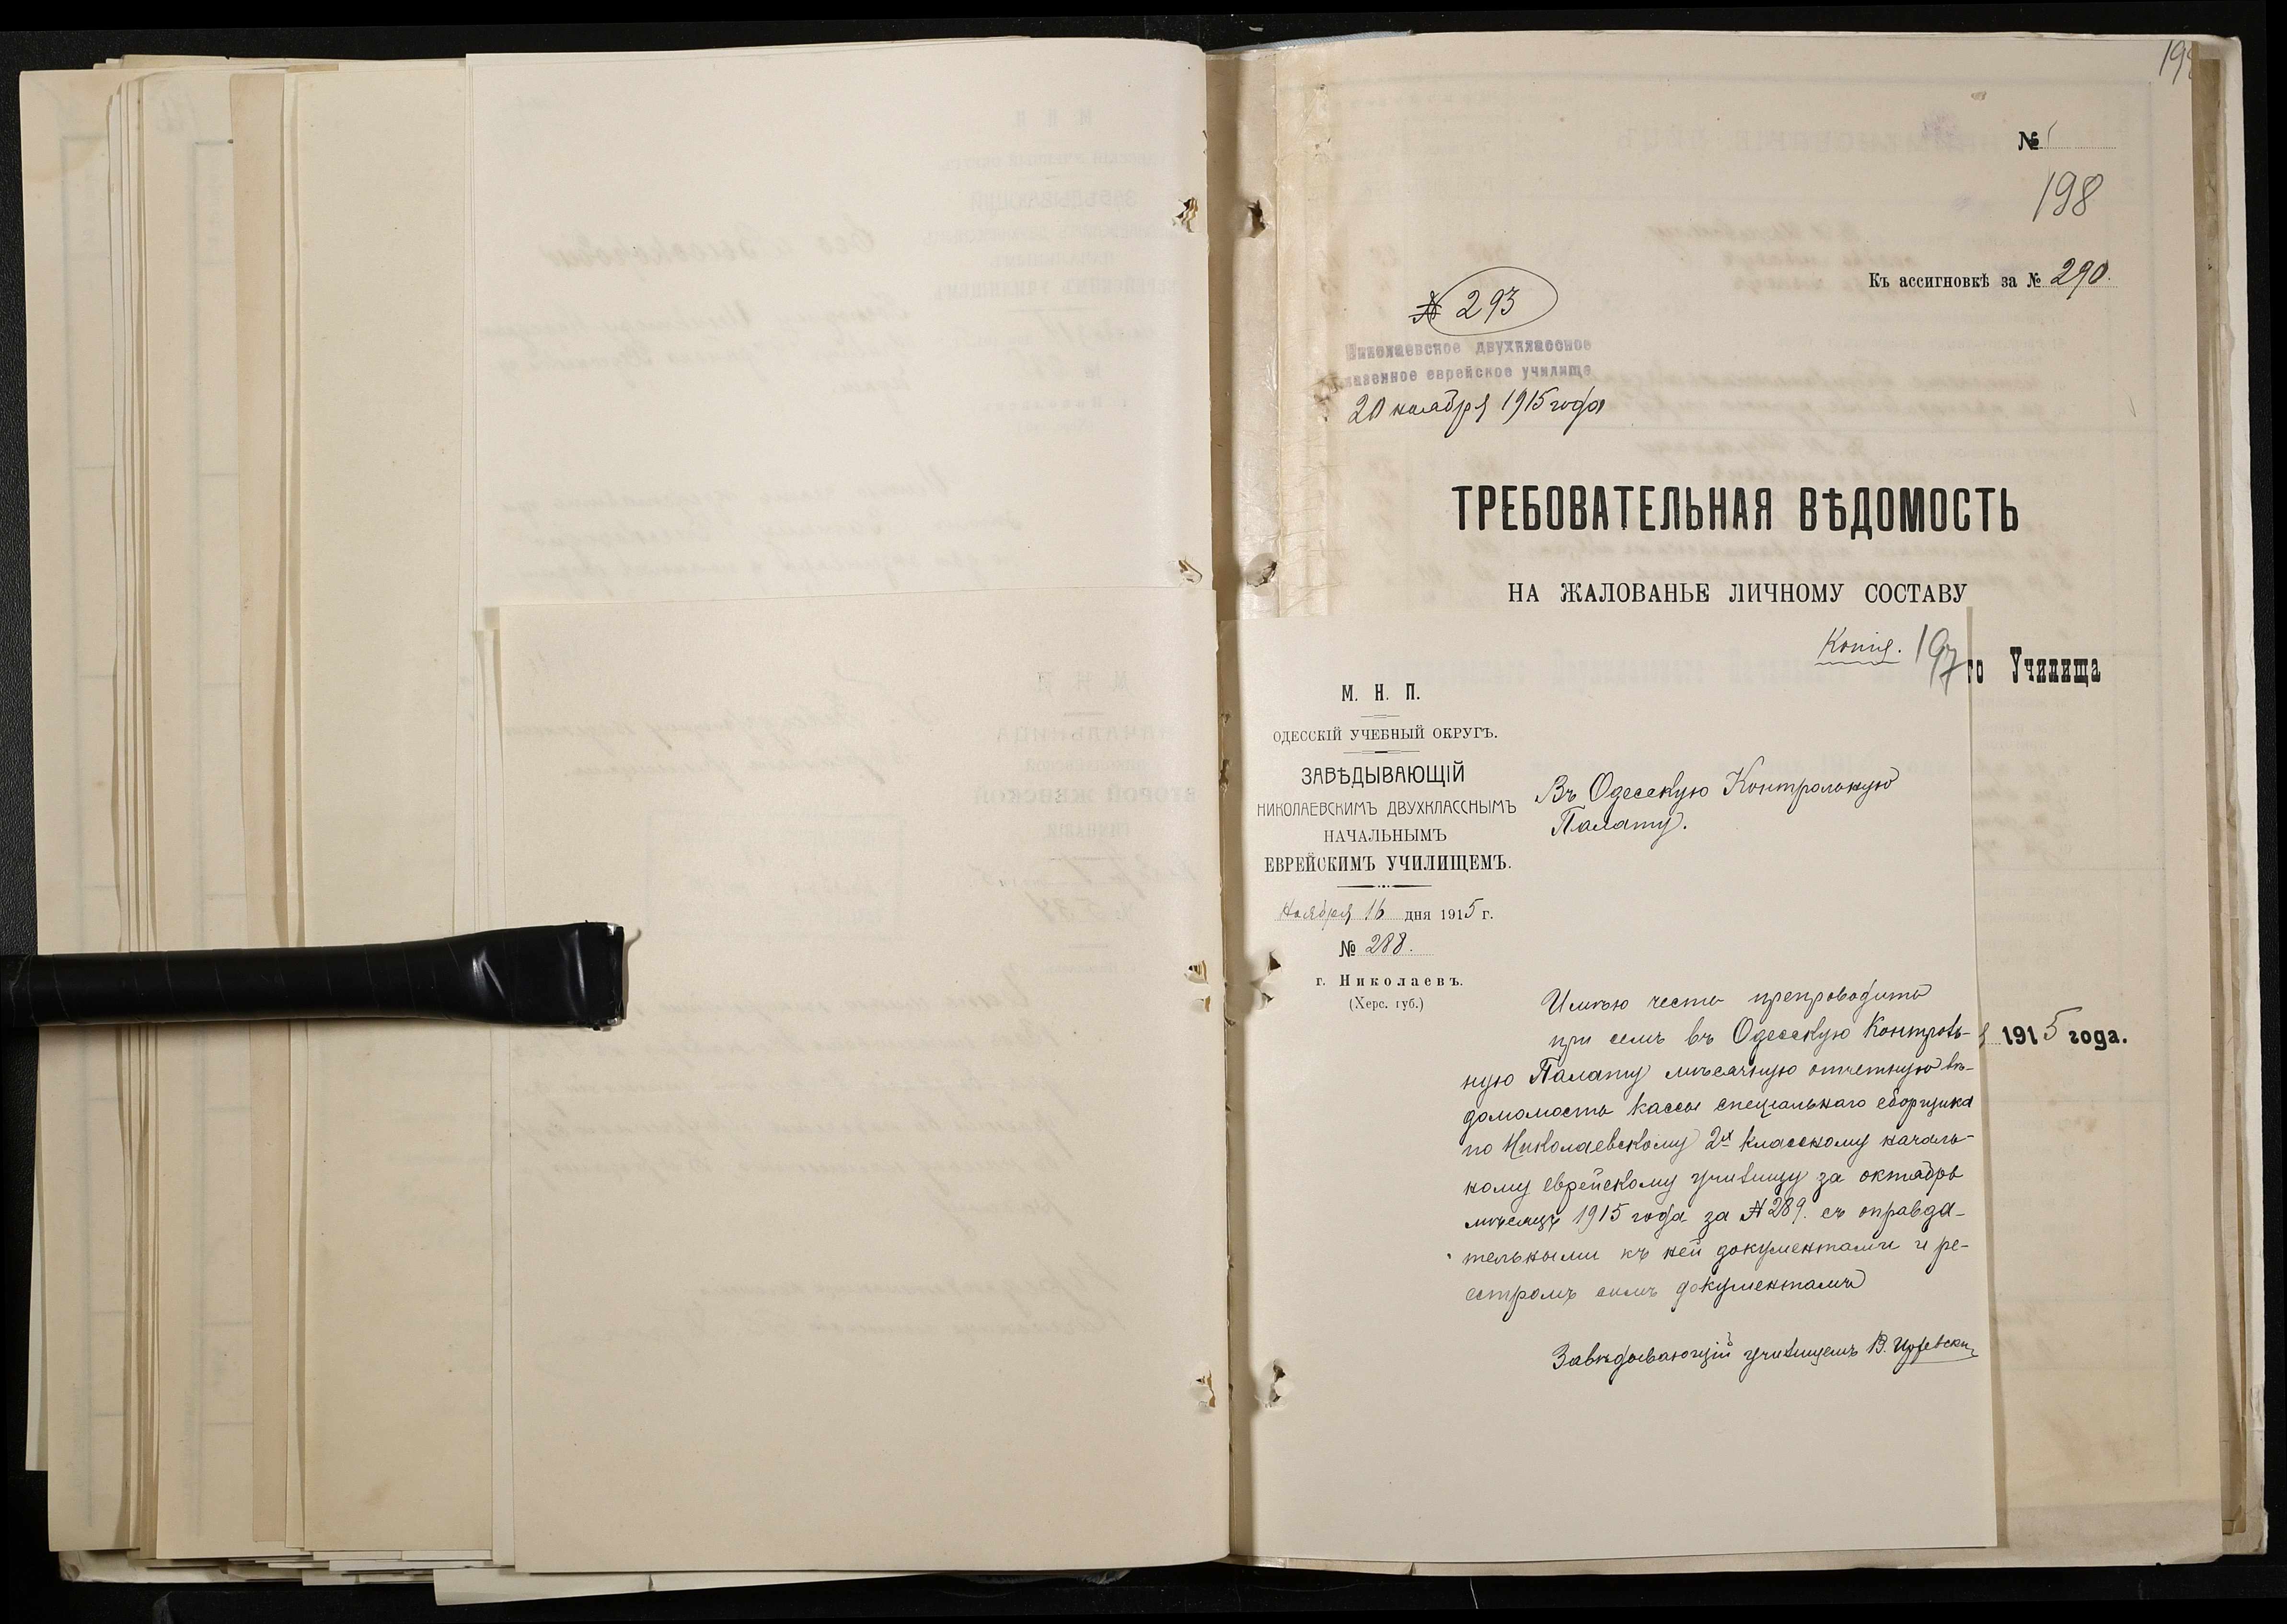 №
198
Къ ассигновкѣ за № 290.
№ 293
Николаевское двухклассное
казенное еврейское училище
20 ноября 1915 года
ТРЕБОВАТЕЛЬНАЯ ВѢДОМОСТЬ
НА ЖАЛОВАНЬЕ ЛИЧНОМУ СОСТАВУ
го Училища
1915 года.
Копія. 197
М. Н. П.
ОДЕССКІЙ УЧЕБНЫЙ ОКРУГЪ.
ЗАВѢДЫВАЮЩІЙ
НИКОЛАЕВСКИМЪ ДВУХКЛАССНЫМЪ
НАЧАЛЬНЫМЪ
ЕВРЕЙСКИМЪ УЧИЛИЩЕМЪ.
Ноября 16 дня 1915 г.
№ 288.
г. Николаевъ.
(Херс. губ.)
Въ Одесскую Контрольную
Палату.
Имѣю честь препроводить
при семъ въ Одесскую Контроль-
ную Палату мѣсячную отчетную вѣ-
домомость кассы спеціальнаго сборщика
по Николаевскому 2х классному началь-
ному еврейскому училищу за октябрь
мѣсяцъ 1915 года за № 289. съ оправда-
тельными къ ней документами и ре-
естромъ симъ документамъ
Завѣдывающій училищемъ В.